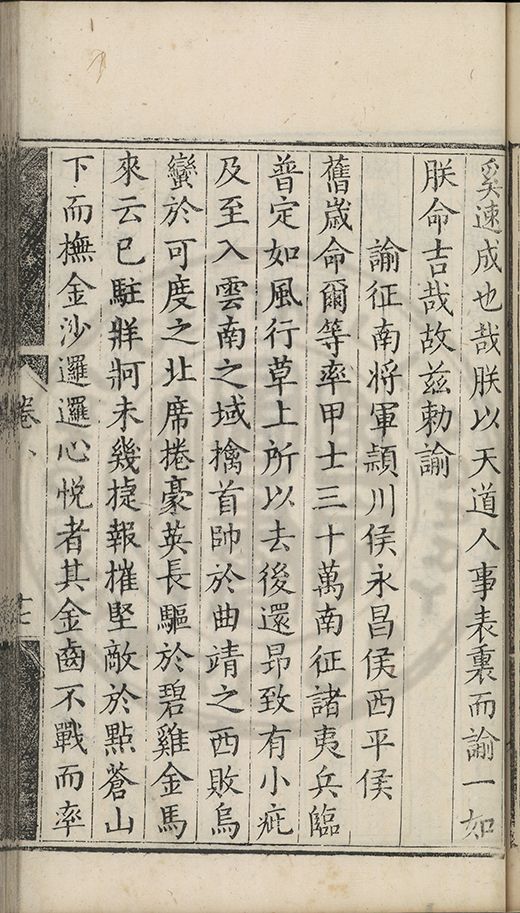 奚速成也哉朕以天道人事表裏而諭一如
朕命吉哉故茲勅諭
諭征南將軍潁川侯永昌侯西平侯
舊歲命爾等率甲士三十萬南征諸夷兵臨
普定如風行草上所以去後還昻致有小疵
及至入雲南之域擒首帥於曲靖之西敗烏
蠻於可度之北席捲豪英長驅於碧雞金馬
來云已駐牂牁未幾捷報摧堅敵於點蒼山
下而撫金沙邏邏心悅者其金齒不戰而率
卷八
十七